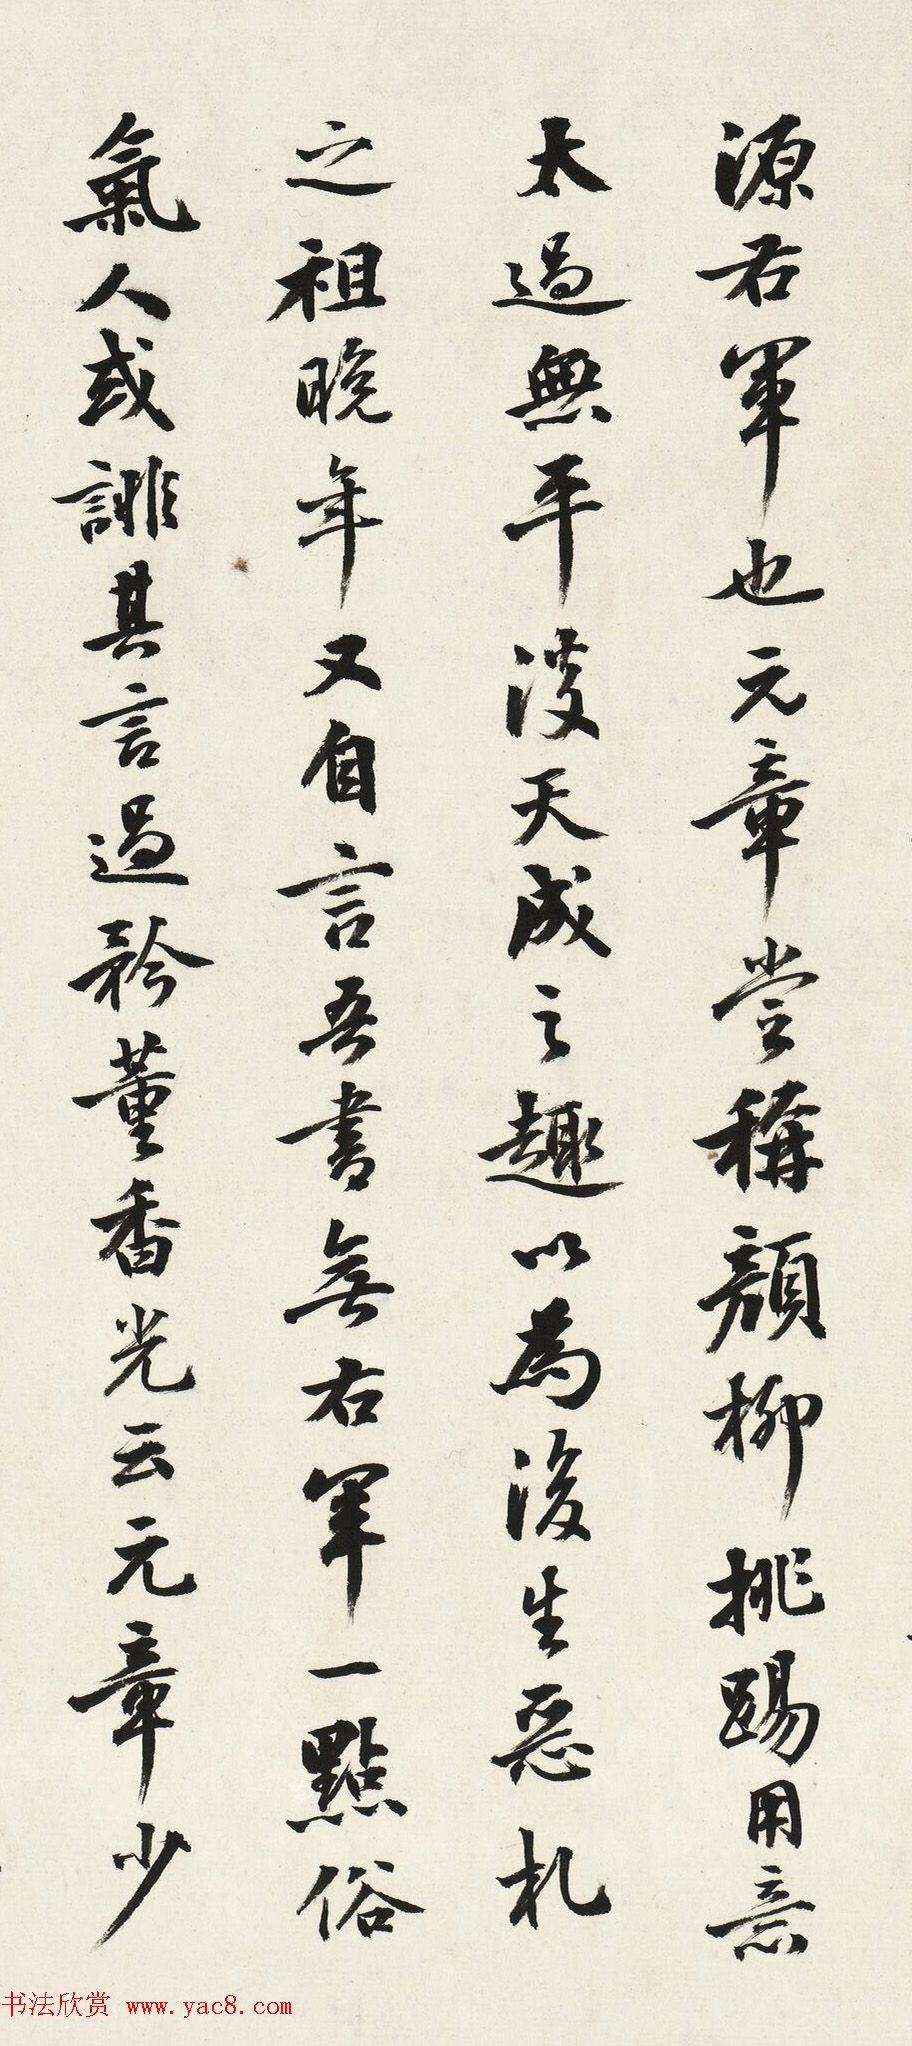 源右軍也元章嘗稱顏柳挑踢用意
太過無平淡天成之趣以為後生惡札
之祖晚年又自言吾書無右軍一點俗
氣人或誹其言過矜董香光云元章少
书法欣赏 www.yac8.com